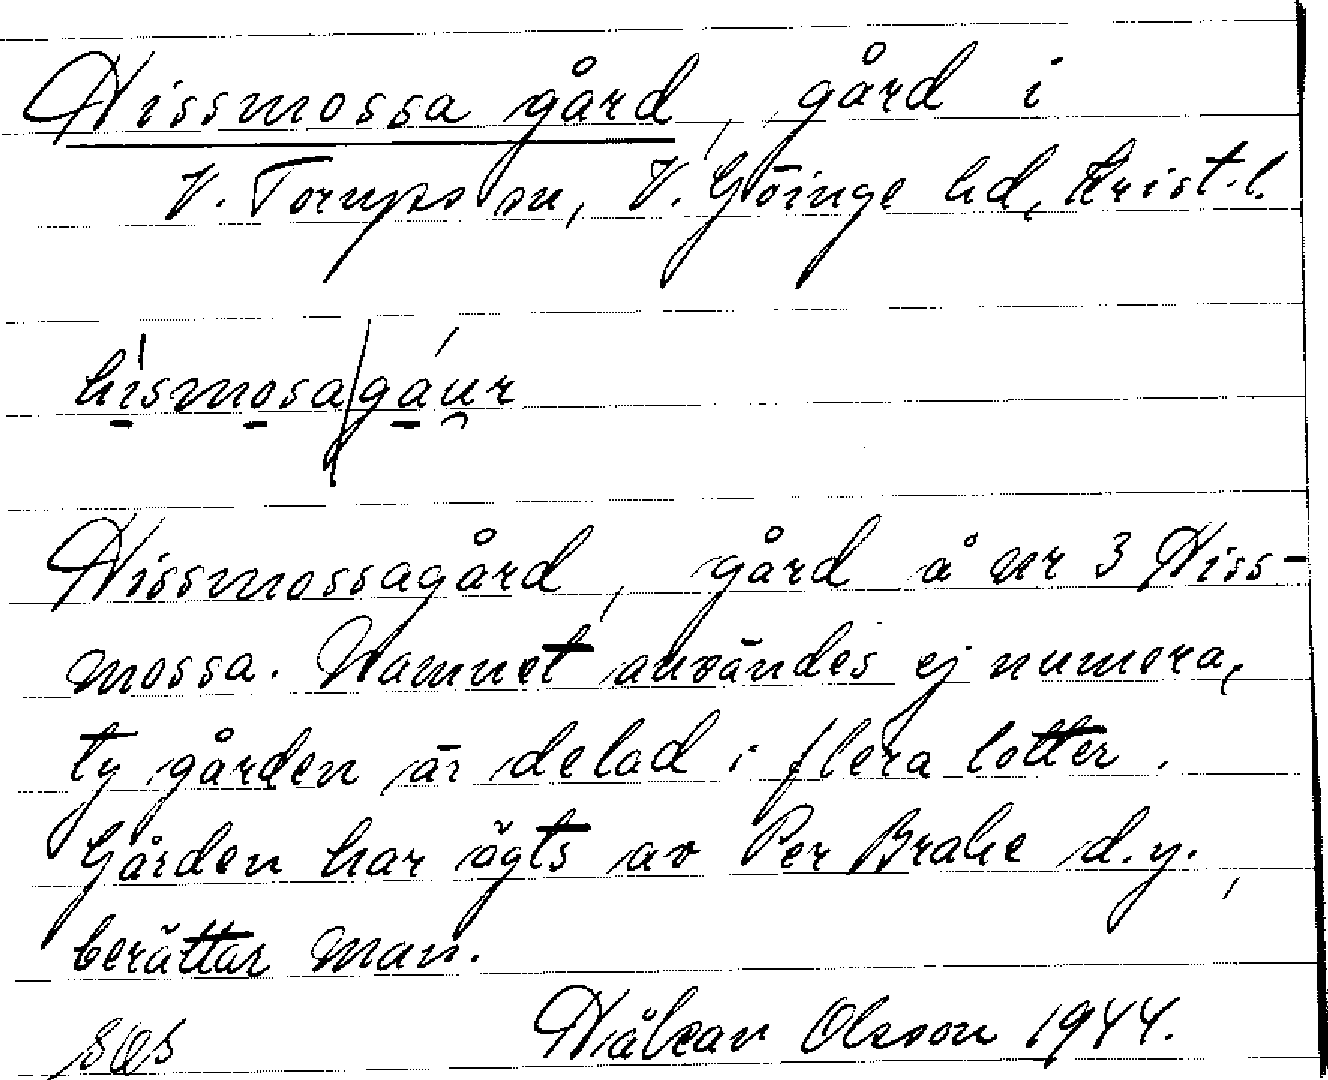 Hissmossa gård, gård i
V. Torups sn, V. Göinge hd, Krist.l.
hismosagáur
Hissmossagård, gård å nr 3 Hiss-
mossa. Namnet användes ej numera,
ty gården är delad i flera lotter.
Gården har ägts av Per Brahe d.y.,
berättar man.
Håkan Olsson 1944.